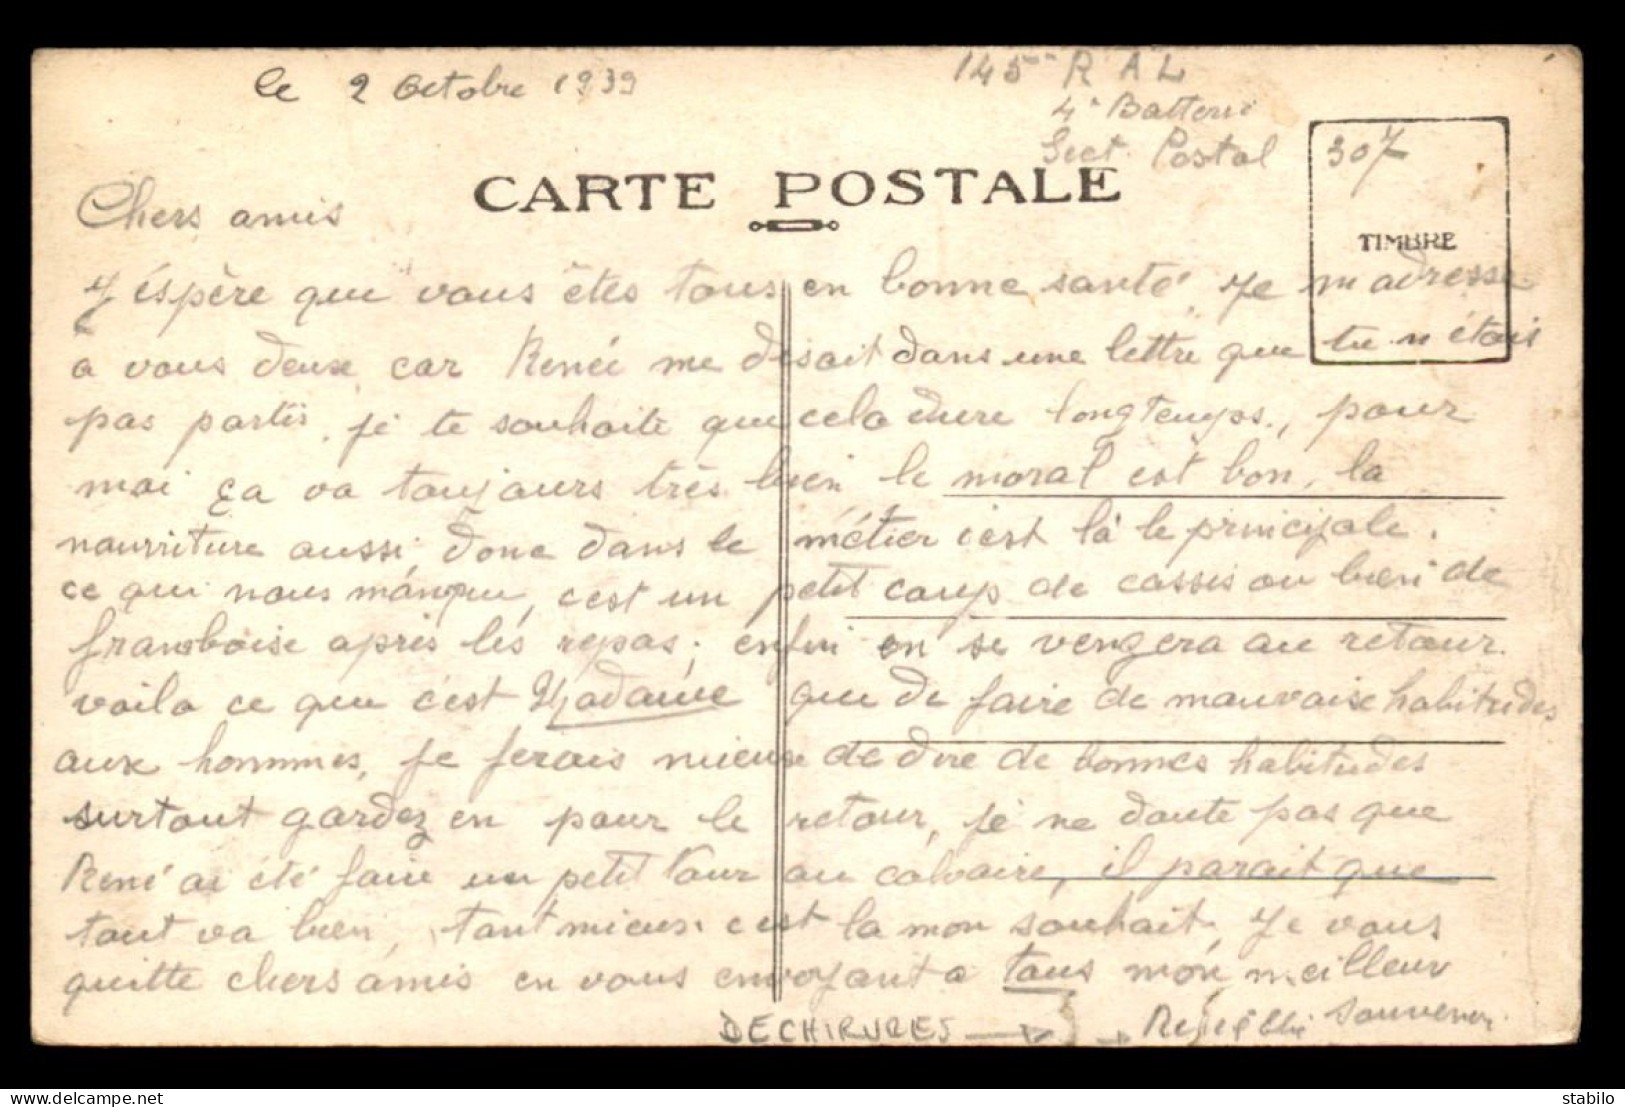 le 2 Octobre 1939
145e R A L
4e Batterie
Sect. Postal 307
CARTE POSTALE
TIMBRE
Chers amis
J'éspère que vous êtes tous en bonne santé, Je m'adresse
a vous deux car Renée me disait dans une lettre que tu n'étais
pas partis, je te souhaite que cela dure longtemps, pour
moi ça va toujours très bien le moral est bon, la
nourriture aussi, donc dans le métier c'est là le principale.
ce qui nous manque, c'est un petit coup de cassis ou bien de
framboise après les repas; enfin on se vengera au retour.
voila ce que c'est Madame que de faire de mauvaise habitudes
aux hommes, je ferais mieux de dire de bonnes habitudes
surtout gardez en pour le retour, je ne doute pas que
René ai été faire un petit tour au calvaire, il parait que
tout va bien, tant mieux c'est la mon souhait, Je vous
quitte chers amis en vous envoyant a tous mon meilleur
souvenir.
DECHIRURES
stabilo
delcampe.net